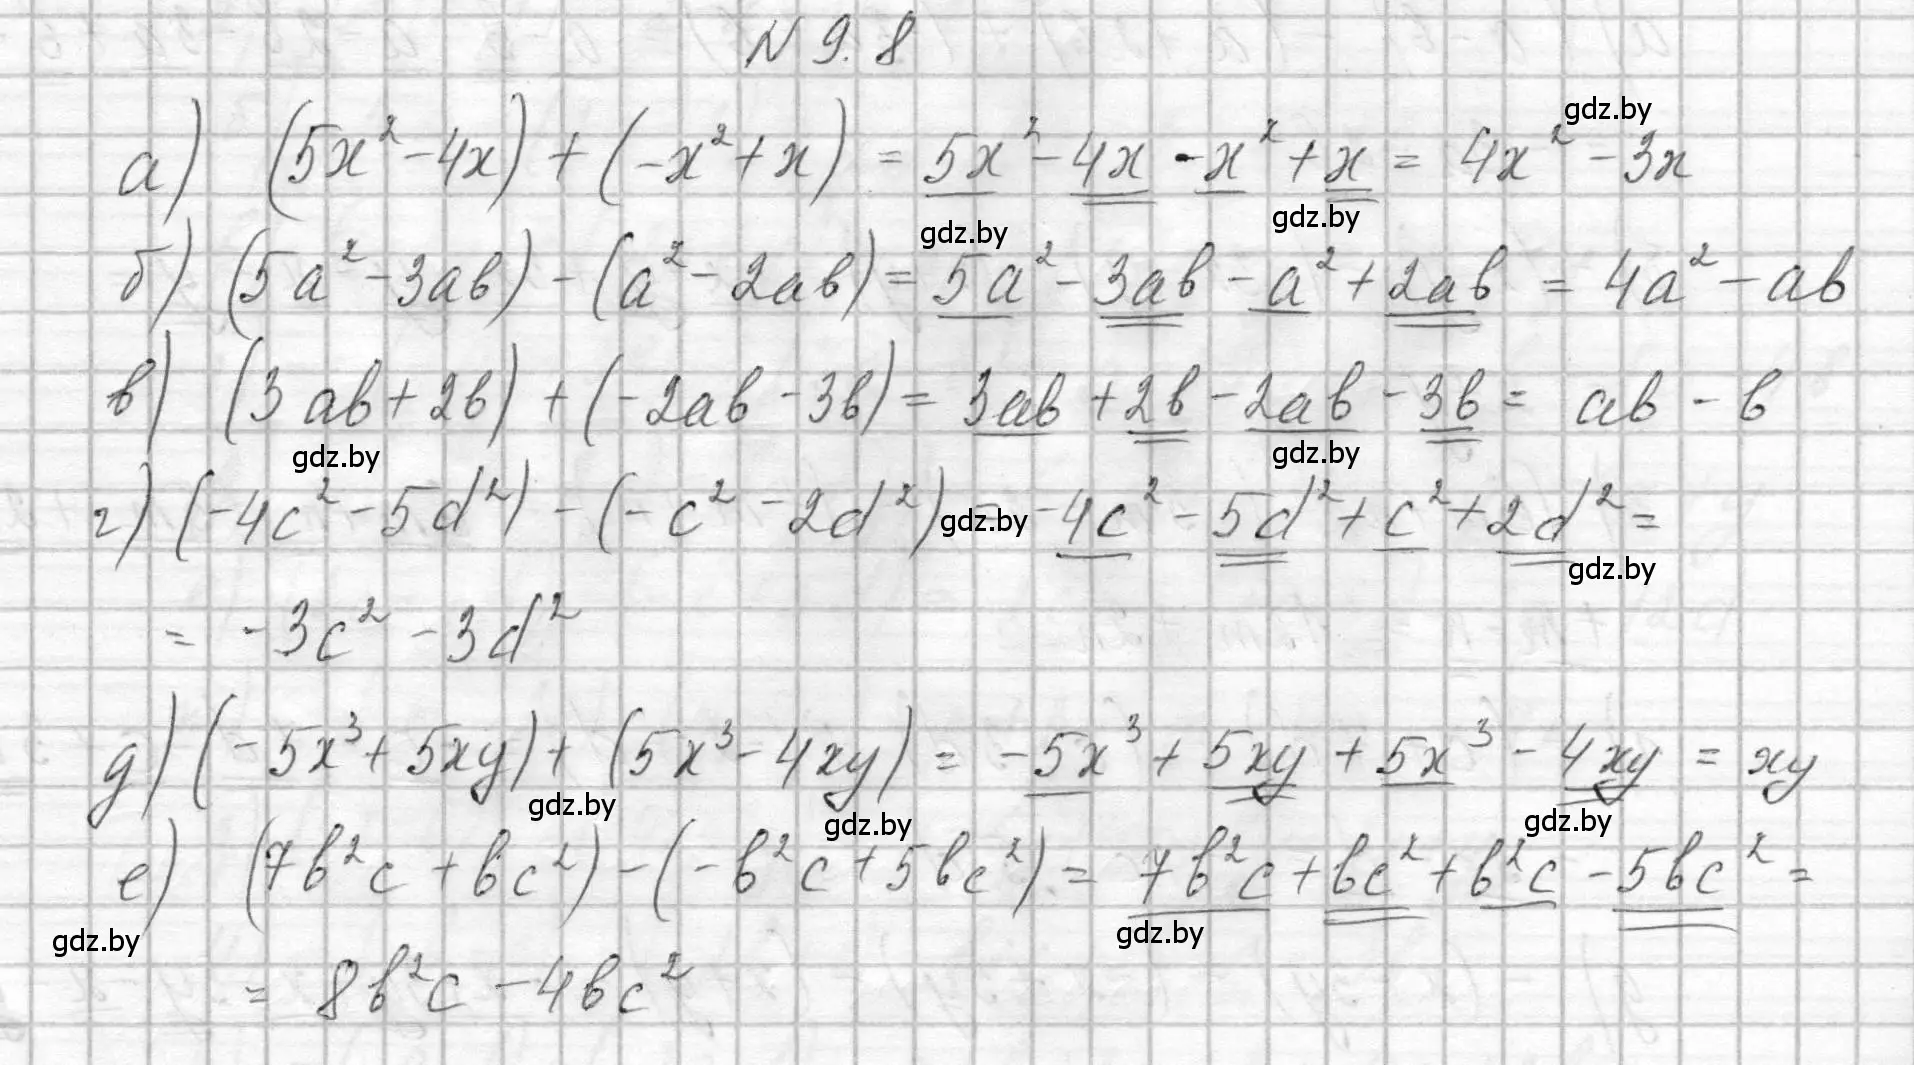 N 9.8
gdz.by
а) (5x² - 4x) + (-x² + x) = 5x² - 4x - x² + x = 4x² - 3x
gdz.by gdz.by
б) (5a² - 3ab) - (a² - 2ab) = 5a² - 3ab - a² + 2ab = 4a² - ab
в) (3ab + 2b) + (-2ab - 3b) = 3ab + 2b - 2ab - 3b = ab - b
gdz.by gdz.by
г) (-4c² - 5d²) - (-c² - 2d²) = -4c² - 5d² + c² + 2d² =
gdz.by gdz.by
= -3c² - 3d²
д) (-5x³ + 5xy) + (5x³ - 4xy) = -5x³ + 5xy + 5x³ - 4xy = xy
gdz.by gdz.by gdz.by
е) (7b²c + bc²) - (-b²c + 5bc²) = 7b²c + bc² + b²c - 5bc² =
gdz.by gdz.by
= 8b²c - 4bc²